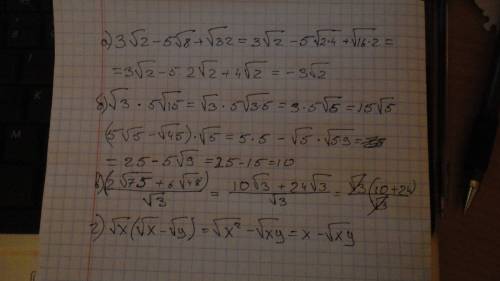 а) 3√2 - 5√8 + √32 = 3√2 - 5√2·4 + √16·2 =
= 3√2 - 5 2√2 + 4√2 = -3√2
б) √3 · 5√15 = √3 · 5√3·5 = 3·5√5 = 15√5
(5√5 - √45)·√5 = 5·5 - √5·√59 =
= 25 - 5√9 = 25 - 15 = 10
в) (2√75 + 6√48)/√3 = (10√3 + 24√3)/√3 = √3(10+24)/√3
г) √x(√x - √y) = √x² - √xy = x - √xy